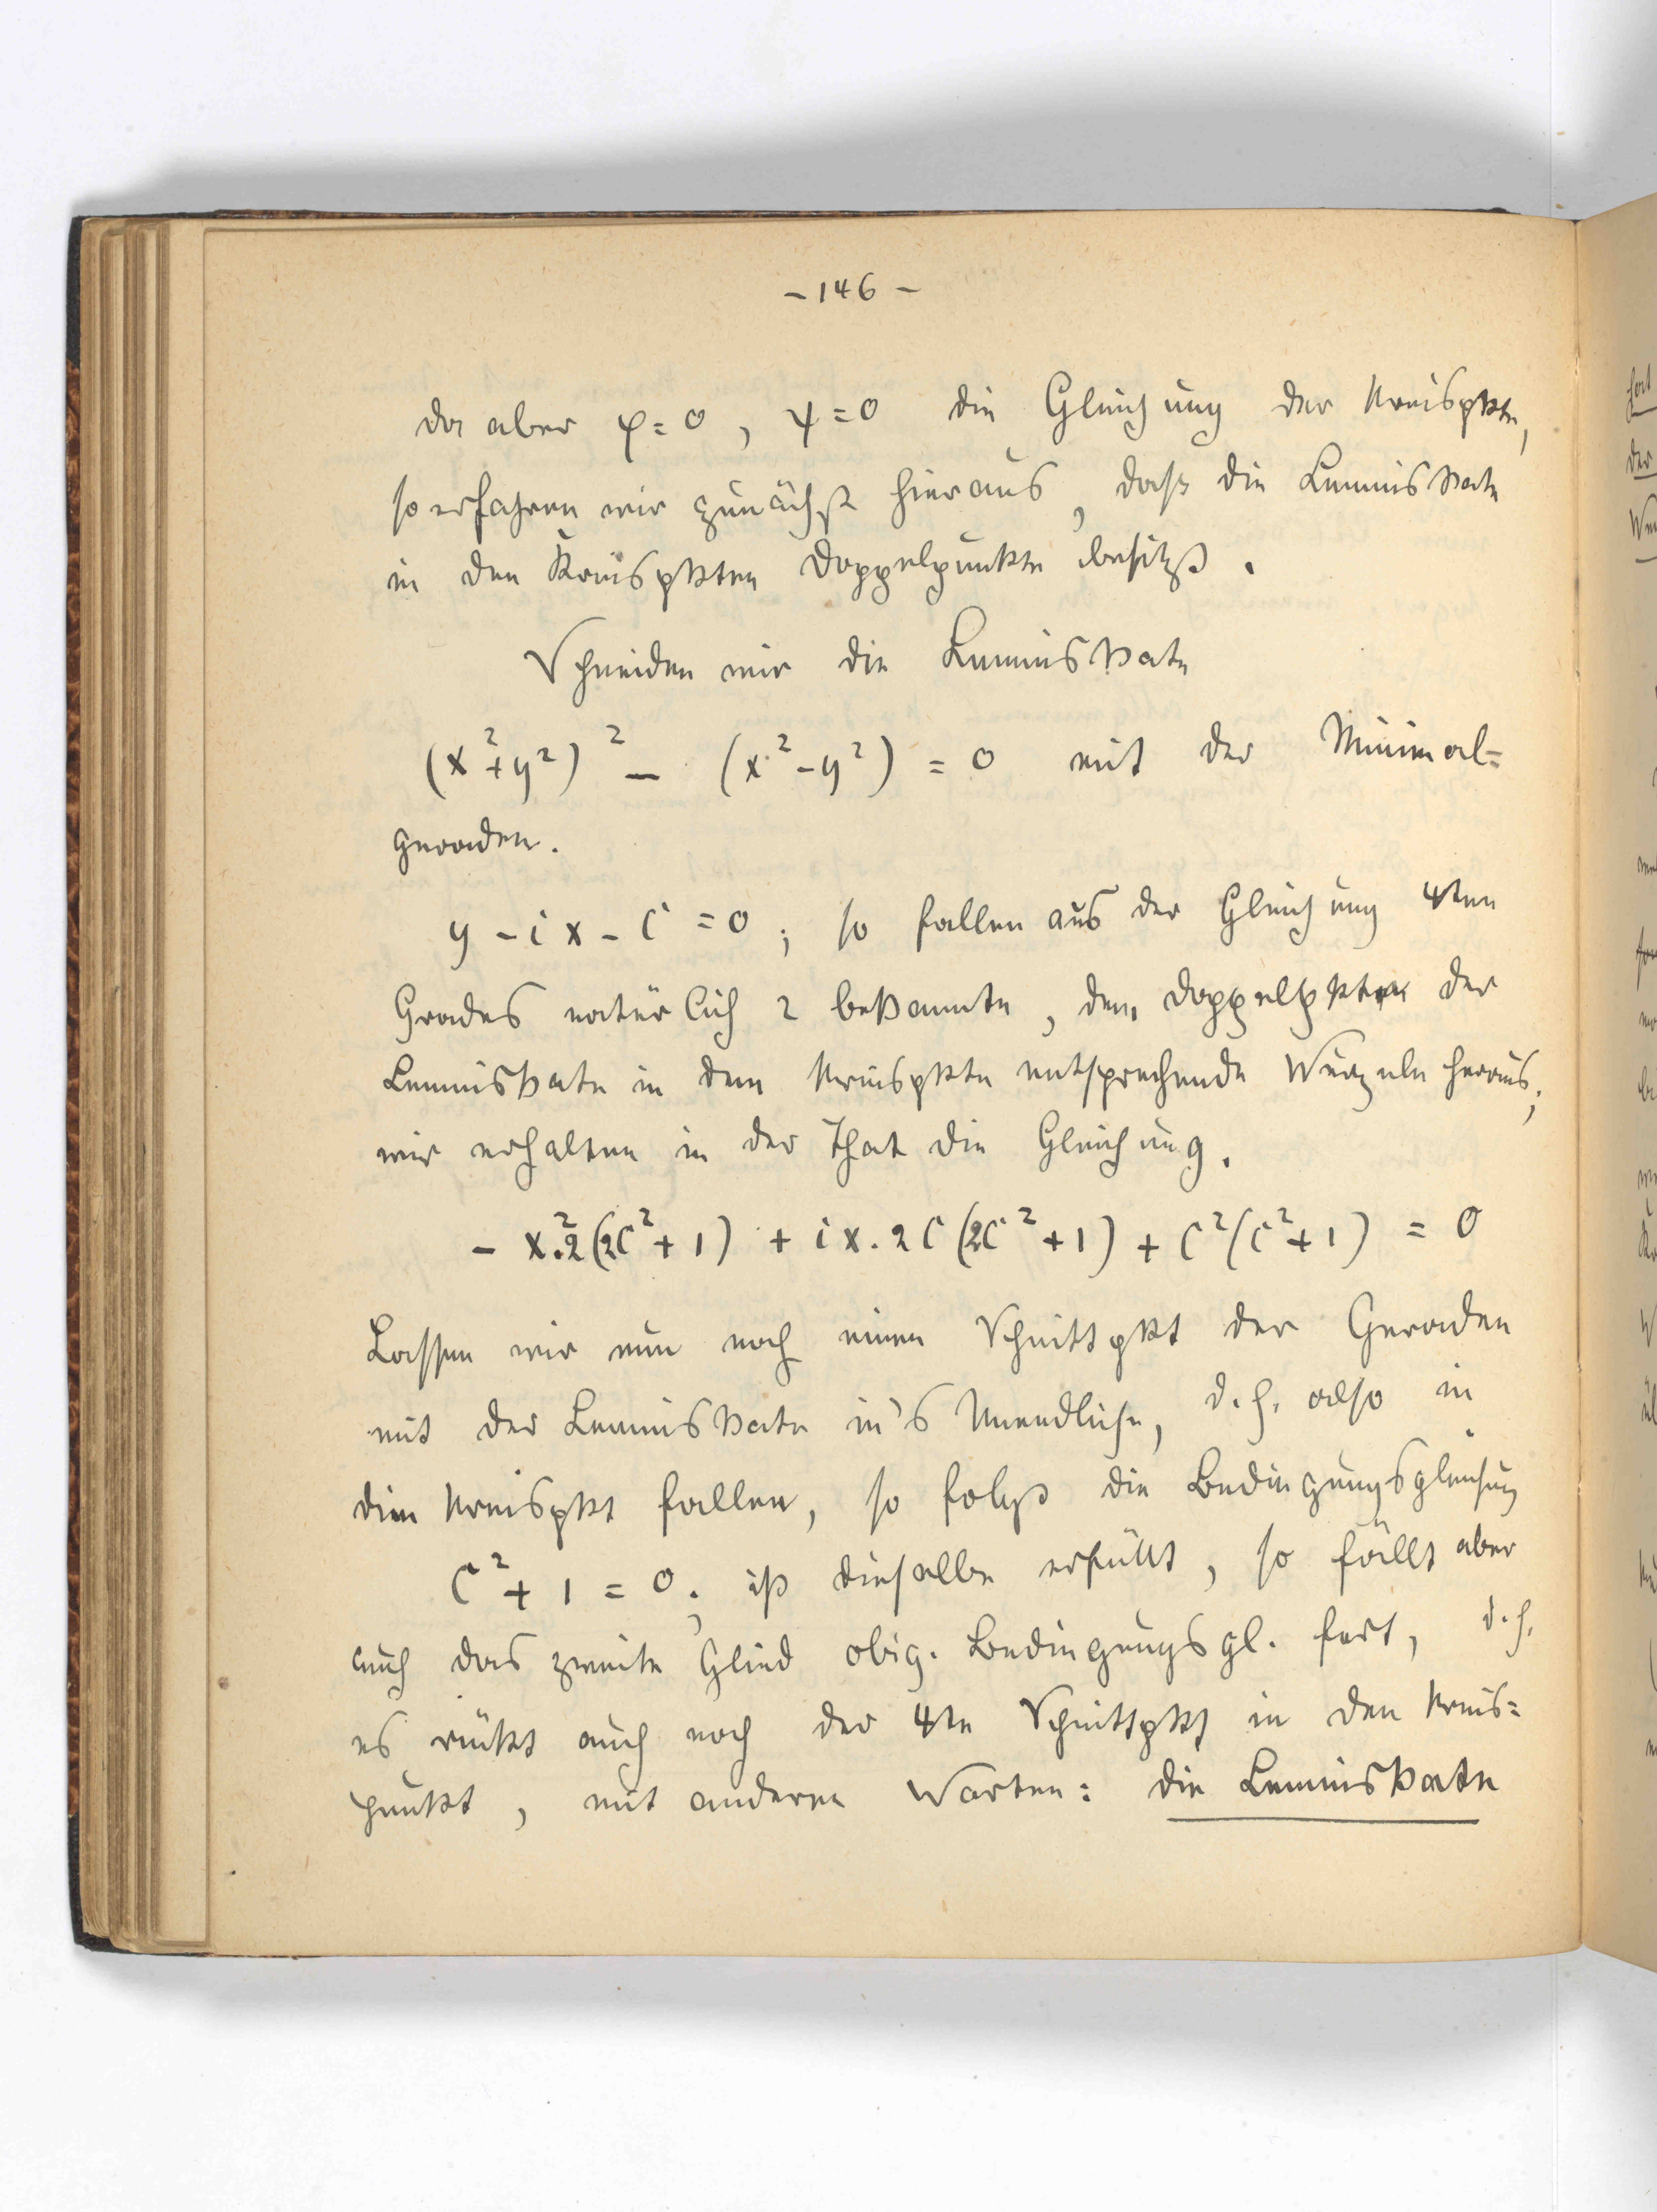 - 146 -
da aber φ = 0 , ψ = 0 die Gleichung der Kreispkte,
so erfahren wir zunächst hieraus, dass die Lemniskate
in den Kreispkten Doppelpunkte besitzt.
Schneiden wir die Lemniskate
(x²+y²)² - (x²-y²) = 0 mit der Minimal=
geraden.
y - i x - C = 0 ; so fallen aus der Gleichung 4ten
Grades natürlich 2 bekannte, dem Doppelpkte der
Lemniskate in dem Kreispkte entsprechende Wurzeln heraus;
wir erhalten in der That die Gleichung.
- x².2(2C²+1) + ix.2C(2C²+1) + C²(C²+1) = 0
Lassen wir nun noch einen Schnittpkt der Geraden
mit der Lemniskate in's Unendliche, d.h. also in
den Kreispkt fallen, so folgt die Bedingungsgleichung
C²+1 = 0; ist dieselbe erfüllt, so fällt aber
auch das zweite Glied obig. Bedingungsgl. fort, d.h.
es rückt auch noch der 4te Schnittpkt in den Kreis=
punkt, mit anderen Worten: die Lemniskate